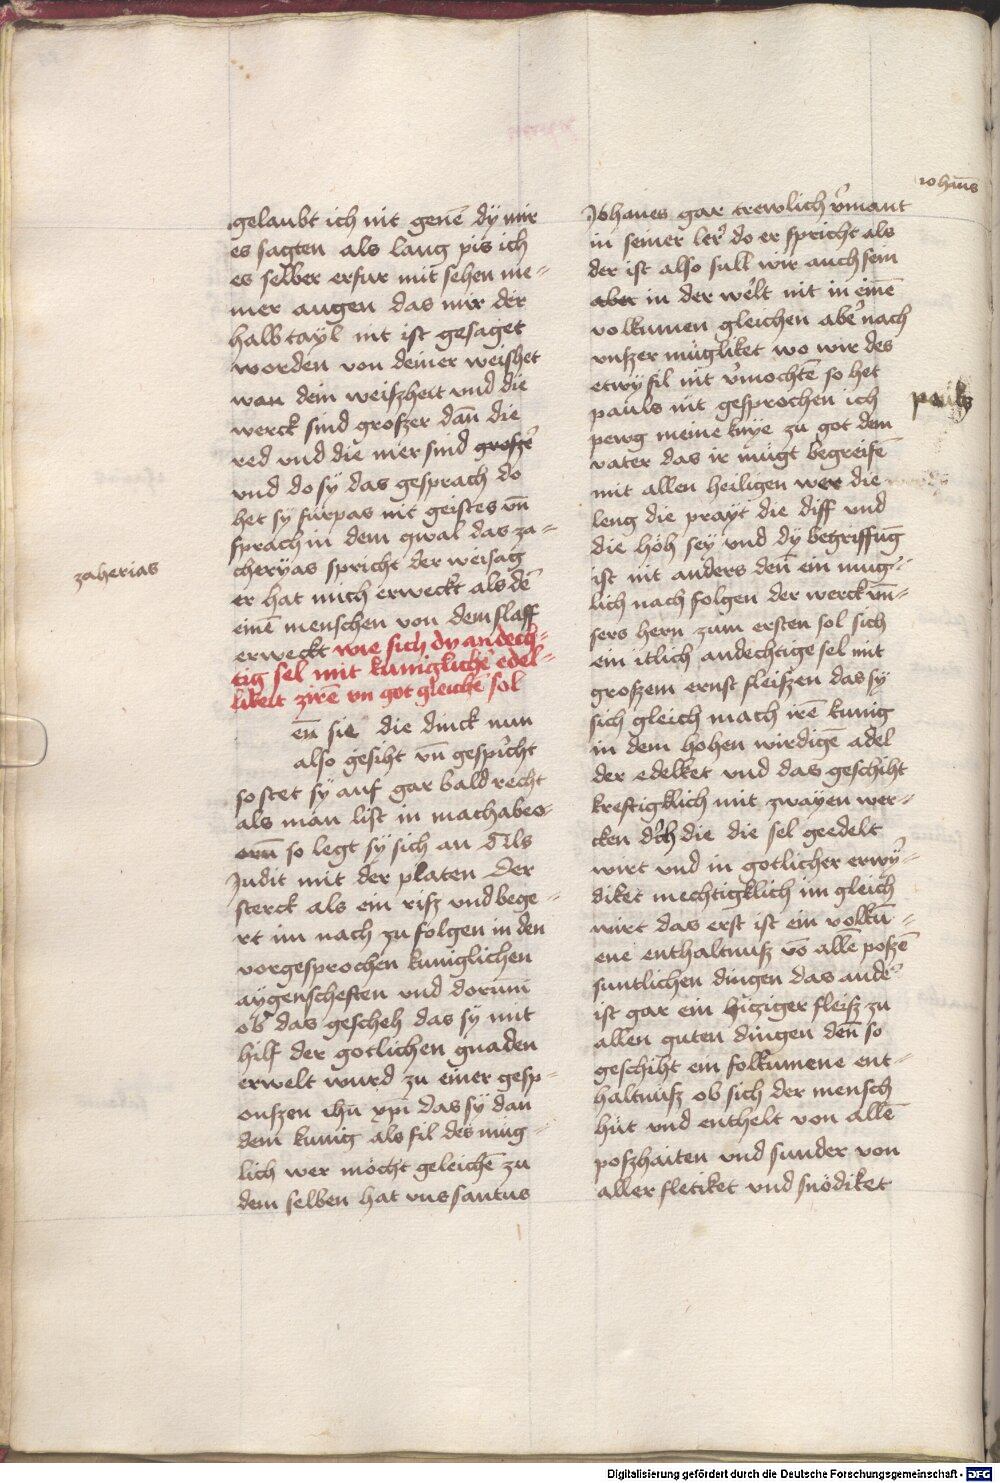 gelaubt ich nit genē dÿ mir
es sagten als lang pis ich
es selber erfur mit sehen me=
iner augen das mir der
halb tayl nit ist gesaget
worden von deiner weishet
wan dein weiszheit vnd die
werck sind groszer dan̄ die
red vnd die mer sind groszē
vnd do sÿ das gesprach do
het sÿ furpas nit geistes vn̄
sprach in dem qwal das za=
cheryas spricht der weisag
er hat mich erweckt als dē
einē menschen von dem slaff
erweckt wie sich dy andech=
tig sel mit kunigklichē edel=
likeit zirē vn got gleichē sol
en̄ sie die dinck nun
also gesiht vn̄ gespricht
so stet sÿ auf gar bald recht
als man list in machabeo=
orū so legt sÿ sich an Als
Judit mit der platen der
sterck als ein risz vnd bege=
rt im nach zu folgen in den
vorgesprochen kuniglichen
aygenscheften vnd dorum
ob das gescheh das sÿ mit
hilf der gotlichen gnaden
erwelt wurd zu einer gesp=
onszen ihū xp̄i das sÿ dan
dem kunig als fil des mug=
lich wer möcht geleichē zu
dem selben hat vns santus
zaherias
Johanes gar trewlich v̄mant
in seiner ler do er spricht als
der ist also sull wir auch sein
aber in der welt nit in einē
volkumen gleichen aber nach
vnszer mügliket wo wir des
etwÿ fil nit v̄mochtē so het
pauls nit gesprochen ich
pewg meine knye zu got dem
vater das ir mugt begreifē
mit allen heiligen wer die
leng die prayt die diff vnd
die höh sey vnd dÿ begriffūg
ist nit anders den̄ ein mug=
lich nach folgen der werck vn=
sers hern zum ersten sol sich
ein itlich andechtige sel mit
groszem ernst fleiszen das sÿ
sich gleich mach irē kunig
in dem hohen wirdigē adel
der edelket vnd das geschiht
kreftigklich mit zwayen wer=
cken dch die die sel geedelt
wirt vnd in gotlicher erwÿ=
diket mechtigklich im gleich
wirt das erst ist ein volkū=
ene enthaltnusz vō allē poszē
suntlichen dingen das andē
ist gar ein hitziger fleisz zu
allen guten dingen den̄ so
geschiht ein folkumene ent=
haltnusz ob sich der mensch
hüt vnd enthelt von allē
poszhaiten vnd sunder von
aller fletiket vnd snödiket
iohan̄s
pauls
Digitalisierung gefördert durch die Deutsche Forschungsgemeinschaft - DFG